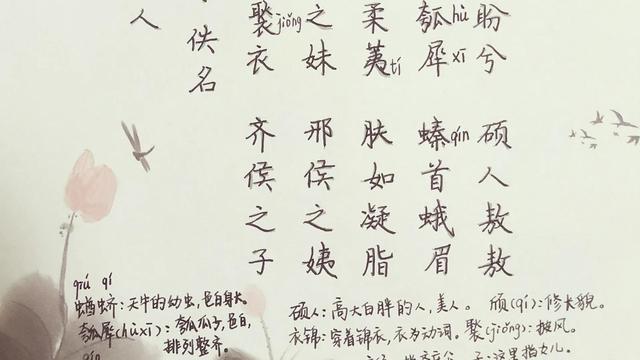 人
佚名
褧jiǒng衣
齐侯之子
之妹
邢侯之姨
柔荑tí
肤如凝脂
瓠hù犀xī
螓qín首蛾眉
盼兮
硕人敖敖
qiú qí
蝤蛴:天牛的幼虫,色白身长。
瓠犀(hù xī):瓠瓜子,色白,
排列整齐。
qín
硕人:高大白胖的人,美人。 颀(qí):修长貌。
衣锦:穿着锦衣,衣为动词。褧(jiǒng):披风。
子:这里指女儿。